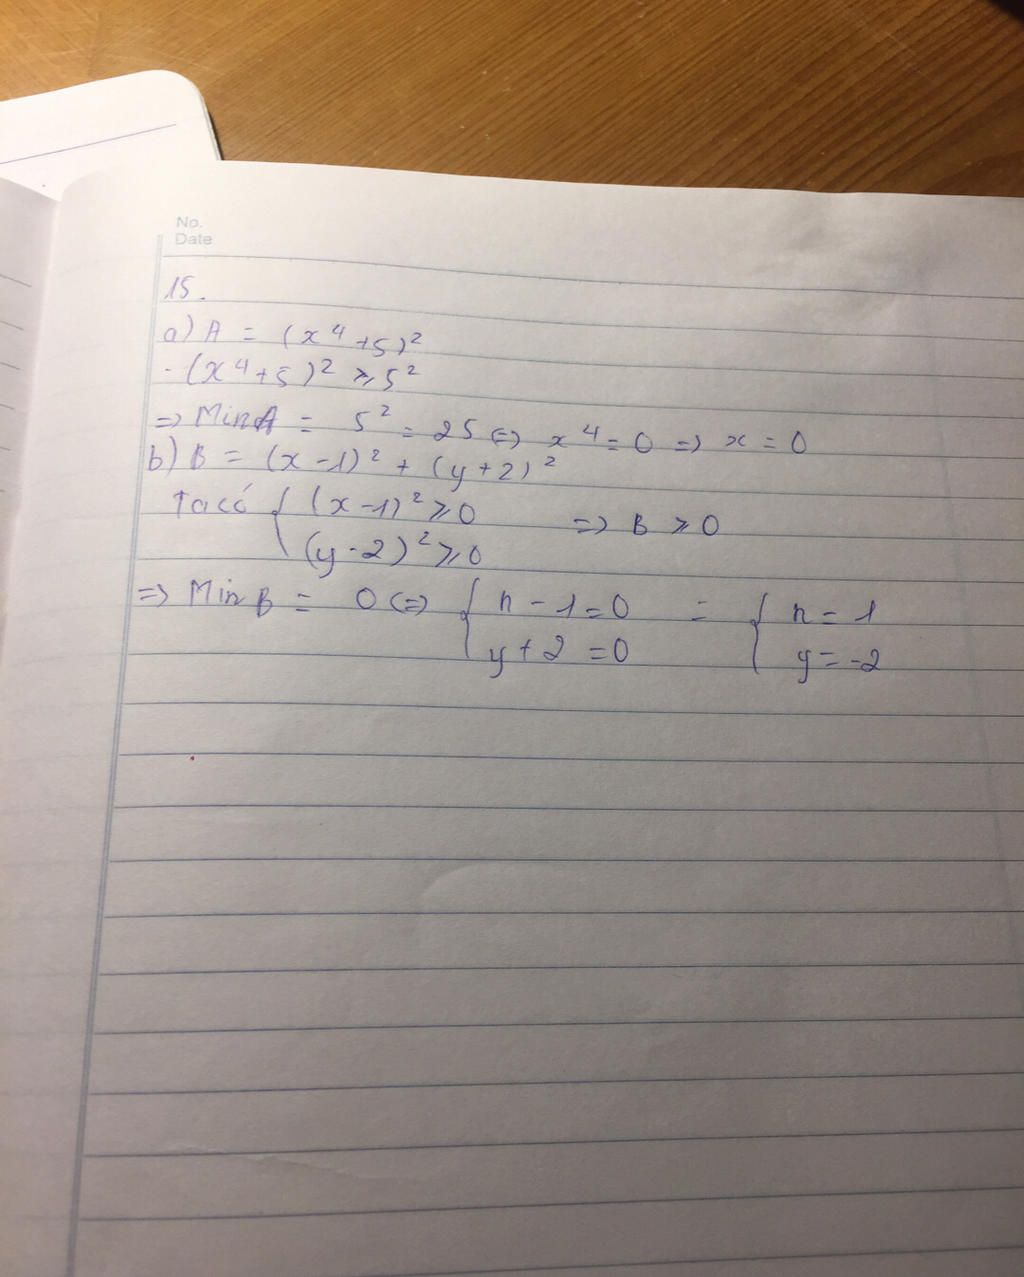 No.
Date
15.
a) A = (x⁴+5)²
- (x⁴+5)² ≥ 5²
=> Min A = 5² = 25 <=> x⁴ = 0 => x = 0
b) B = (x-1)² + (y+2)²
Ta có { (x-1)² ≥ 0 => B ≥ 0
(y-2)² ≥ 0
=> Min B = 0 <=> { x - 1 = 0 = { x = 1
y + 2 = 0 y = -2